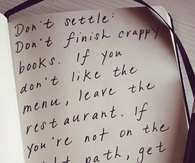 Don't settle:
Don't finish crappy
books. If you
don't like the
menu, leave the
restaurant. If
you're not on the
path, get